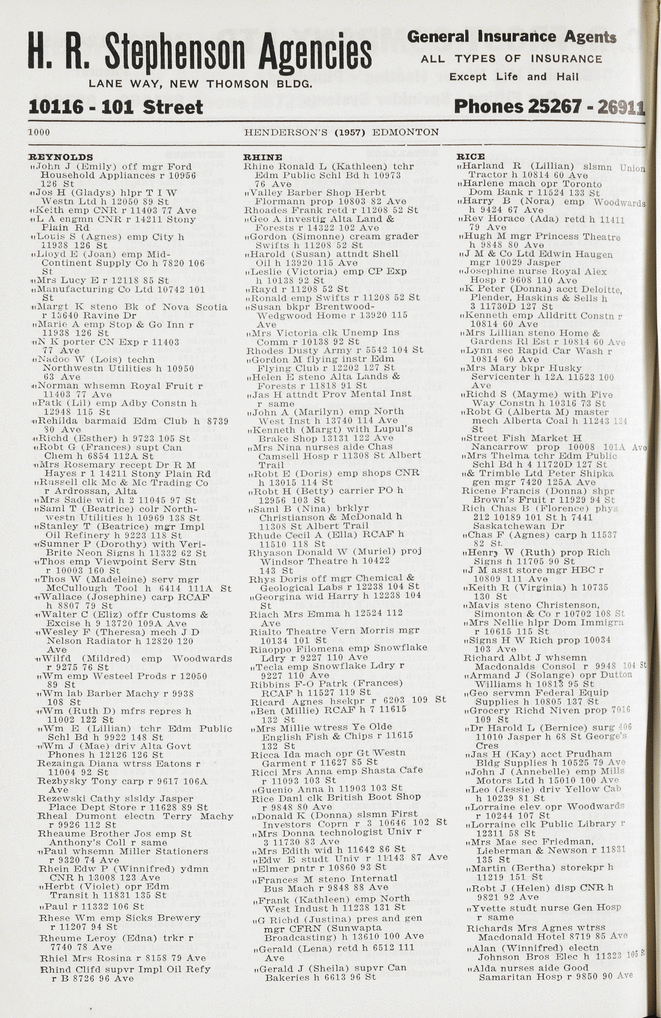 H. R. Stephenson Agencies
LANE WAY, NEW THOMSON BLDG.
General Insurance Agents
ALL TYPES OF INSURANCE
Except Life and Hail
10116 - 101 Street
Phones 25267 - 26911
1000
HENDERSON'S (1957) EDMONTON
REYNOLDS
"John J (Emily) off mgr Ford
Household Appliances r 10956
126 St
"Jos H (Gladys) hlpr T I W
Westn Ltd h 12050 89 St
"Keith emp CNR r 11403 77 Ave
"L A engmn CNR r 14211 Stony
Plain Rd
"Louis S (Agnes) emp City h
11938 126 St
"Lloyd E (Joan) emp Mid-
Continent Supply Co h 7820 106
St
"Mrs Lucy E r 12118 85 St
"Manufacturing Co Ltd 10742 101
St
"Margt K steno Bk of Nova Scotia
r 13640 Ravine Dr
"Marie A emp Stop & Go Inn r
11938 126 St
"N K porter CN Exp r 11403
77 Ave
"Nadoo W (Lois) techn
Northwestn Utilities h 10950
63 Ave
"Norman whsemn Royal Fruit r
11403 77 Ave
"Patk (Lil) emp Adby Constn h
12948 115 St
"Rehilda barmaid Edm Club h 8739
80 Ave
"Richd (Esther) h 9723 105 St
"Robt G (Frances) supt Can
Chem h 6854 112A St
"Mrs Rosemary recept Dr R M
Hayes r 1 14211 Stony Plain Rd
"Russell clk Mc & Mc Trading Co
r Ardrossan, Alta
"Mrs Sadie wid h 2 11045 97 St
"Saml T (Beatrice) colr North-
westn Utilities h 10969 138 St
"Stanley T (Beatrice) mgr Impl
Oil Refinery h 9223 118 St
"Sumner P (Dorothy) with Veri-
Brite Neon Signs h 11332 62 St
"Thos emp Viewpoint Serv Stn
r 10003 160 St
"Thos W (Madeleine) serv mgr
McCullough Tool h 6414 111A St
"Wallace (Josephine) carp RCAF
h 8807 79 St
"Walter C (Eliz) offr Customs &
Excise h 9 13720 109A Ave
"Wesley F (Theresa) mech J D
Nelson Radiator h 12820 120
Ave
"Wilfd (Mildred) emp Woodwards
r 9275 76 St
"Wm emp Westeel Prods r 12050
89 St
"Wm lab Barber Machy r 9938
108 St
"Wm (Ruth D) mfrs repres h
11002 122 St
"Wm E (Lillian) tchr Edm Public
Schl Bd h 9922 148 St
"Wm J (Mae) driv Alta Govt
Phones h 12126 126 St
Rezainga Diana wtrss Eatons r
11004 92 St
Rezbysky Tony carp r 9617 106A
Ave
Rezewski Cathy slsldy Jasper
Place Dept Store r 11628 89 St
Rheal Dumont electn Terry Machy
r 9926 112 St
Rheaume Brother Jos emp St
Anthony's Coll r same
"Paul whsemn Miller Stationers
r 9320 74 Ave
Rhein Edw P (Winnifred) ydmn
CNR h 13008 123 Ave
"Herbt (Violet) opr Edm
Transit h 11831 135 St
"Paul r 11332 106 St
Rhese Wm emp Sicks Brewery
r 11207 94 St
Rheume Leroy (Edna) trkr r
7740 78 Ave
Rhiel Mrs Rosina r 8158 79 Ave
Rhind Clifd supvr Impl Oil Refy
r B 8726 96 Ave
RHINE
Rhine Ronald L (Kathleen) tchr
Edm Public Schl Bd h 10973
76 Ave
"Valley Barber Shop Herbt
Flormann prop 10803 82 Ave
Rhoades Frank retd r 11208 52 St
"Geo A investig Alta Land &
Forests r 14322 102 Ave
"Gordon (Simonne) cream grader
Swifts h 11208 52 St
"Harold (Susan) attndt Shell
Oil h 13920 115 Ave
"Leslie (Victoria) emp CP Exp
h 10138 92 St
"Rayd r 11208 52 St
"Ronald emp Swifts r 11208 52 St
"Susan bkpr Brentwood-
Wedgwood Home r 13920 115
Ave
"Mrs Victoria clk Unemp Ins
Comm r 10138 92 St
Rhodes Dusty Army r 5542 104 St
"Gordon M flying instr Edm
Flying Club r 12202 127 St
"Helen E steno Alta Lands &
Forests r 11818 91 St
"Jas H attdt Prov Mental Inst
r same
"John A (Marilyn) emp North
West Inst h 13740 114 Ave
"Kenneth (Margt) with Lupul's
Brake Shop 13131 122 Ave
"Mrs Nina nurses aide Chas
Camsell Hosp r 11308 St Albert
Trail
"Robt E (Doris) emp shops CNR
h 13015 114 St
"Robt H (Betty) carrier PO h
12956 103 St
"Saml B (Nina) brklyr
Christianson & McDonald h
11308 St Albert Trail
Rhude Cecil A (Ella) RCAF h
11510 118 St
Rhyason Donald W (Muriel) proj
Windsor Theatre h 10422
143 St
Rhys Doris off mgr Chemical &
Geological Labs r 12238 104 St
"Georgina wid Harry h 12238 104
St
Riach Mrs Emma h 12524 112
Ave
Rialto Theatre Vern Morris mgr
10134 101 St
Riaoppo Filomena emp Snowflake
Ldry r 9227 110 Ave
"Tecla emp Snowflake Ldry r
9227 110 Ave
Ribbins F-O Patrk (Frances)
RCAF h 11527 119 St
Ricard Agnes hsekpr r 6203 109 St
"Ben (Millie) RCAF h 7 11615
132 St
"Mrs Millie wtrss Ye Olde
English Fish & Chips r 11615
132 St
Ricca Ida mach opr Gt Westn
Garment r 11627 85 St
Ricci Mrs Anna emp Shasta Cafe
r 11093 103 St
"Guenio Anna h 11903 103 St
Rice Danl clk British Boot Shop
r 9848 80 Ave
"Donald K (Donna) slsmn First
Investors Coprn r 3 10646 102 St
"Mrs Donna technologist Univ r
3 11730 83 Ave
"Mrs Edith wid h 11642 86 St
"Edw E studt Univ r 11143 87 Ave
"Elmer pntr r 10860 93 St
"Frances M steno Internatl
Bus Mach r 9848 88 Ave
"Frank (Kathleen) emp North
West Indust h 11238 131 St
"G Richd (Justina) pres and gen
mgr CFRN (Sunwapta
Broadcasting) h 13610 100 Ave
"Gerald (Lena) retd h 6512 111
Ave
"Gerald J (Sheila) supvr Can
Bakeries h 6613 96 St
RICE
"Harland R (Lillian) slsmn Union
Tractor h 10814 60 Ave
"Harlene mach opr Toronto
Dom Bank r 11524 133 St
"Harry B (Nora) emp Woodwards
h 9424 67 Ave
"Rev Horace (Ada) retd h 11411
79 Ave
"Hugh M mgr Princess Theatre
h 9848 80 Ave
"J M & Co Ltd Edwin Haugen
mgr 10029 Jasper
"Josephine nurse Royal Alex
Hosp r 9608 110 Ave
"K Peter (Donna) acct Deloitte,
Plender, Haskins & Sells h
3 11730D 127 St
"Kenneth emp Alldritt Constn r
10814 60 Ave
"Mrs Lillian steno Home &
Gardens Rl Est r 10814 60 Ave
"Lynn sec Rapid Car Wash r
10814 60 Ave
"Mrs Mary bkpr Husky
Servicenter h 12A 11523 100
Ave
"Richd S (Mayme) with Five
Way Constn h 10316 73 St
"Robt G (Alberta M) master
mech Alberta Coal h 11243 124
St
"Street Fish Market H
Nancarrow prop 10008 101A Ave
"Mrs Thelma tchr Edm Public
Schl Bd h 4 11720D 127 St
"& Trimble Ltd Peter Shipka
gen mgr 7420 125A Ave
Ricene Francis (Donna) shpr
Brown's Fruit r 11929 94 St
Rich Chas B (Florence) phys
212 10189 101 St h 7441
Saskatchewan Dr
"Chas F (Agnes) carp h 11537
82 St
"Henry W (Ruth) prop Rich
Signs h 11705 90 St
"J M asst store mgr HBC r
10809 111 Ave
"Keith R (Virginia) h 10735
130 St
"Mavis steno Christenson,
Simonton & Co r 10702 108 St
"Mrs Nellie hlpr Dom Immigra
r 10615 115 St
"Signs H W Rich prop 10034
103 Ave
Richard Albt J whsemn
Macdonalds Consol r 9948 104 St
"Armand J (Solange) opr Dutton
Williams h 10813 95 St
"Geo servmn Federal Equip
Supplies h 10805 137 St
"Grocery Richd Niven prop 7016
109 St
"Dr Harold L (Bernice) surg 406
11010 Jasper h 68 St George's
Cres
"Jas H (Kay) acct Prudham
Bldg Supplies h 10525 79 Ave
"John J (Annebelle) emp Mills
Motors Ltd h 15010 100 Ave
"Leo (Jessie) driv Yellow Cab
h 10239 81 St
"Lorraine elev opr Woodwards
r 10244 107 St
"Lorraine clk Public Library r
12311 58 St
"Mrs Mae sec Friedman,
Lieberman & Newson r 11831
135 St
"Martin (Bertha) storekpr h
11219 151 St
"Robt J (Helen) disp CNR h
9821 92 Ave
"Yvette studt nurse Gen Hosp
r same
Richards Mrs Agnes wtrss
Macdonald Hotel 8719 85 Ave
"Alan (Winnifred) electn
Johnson Bros Elec h 11323 105 St
"Alda nurses aide Good
Samaritan Hosp r 9850 90 Ave